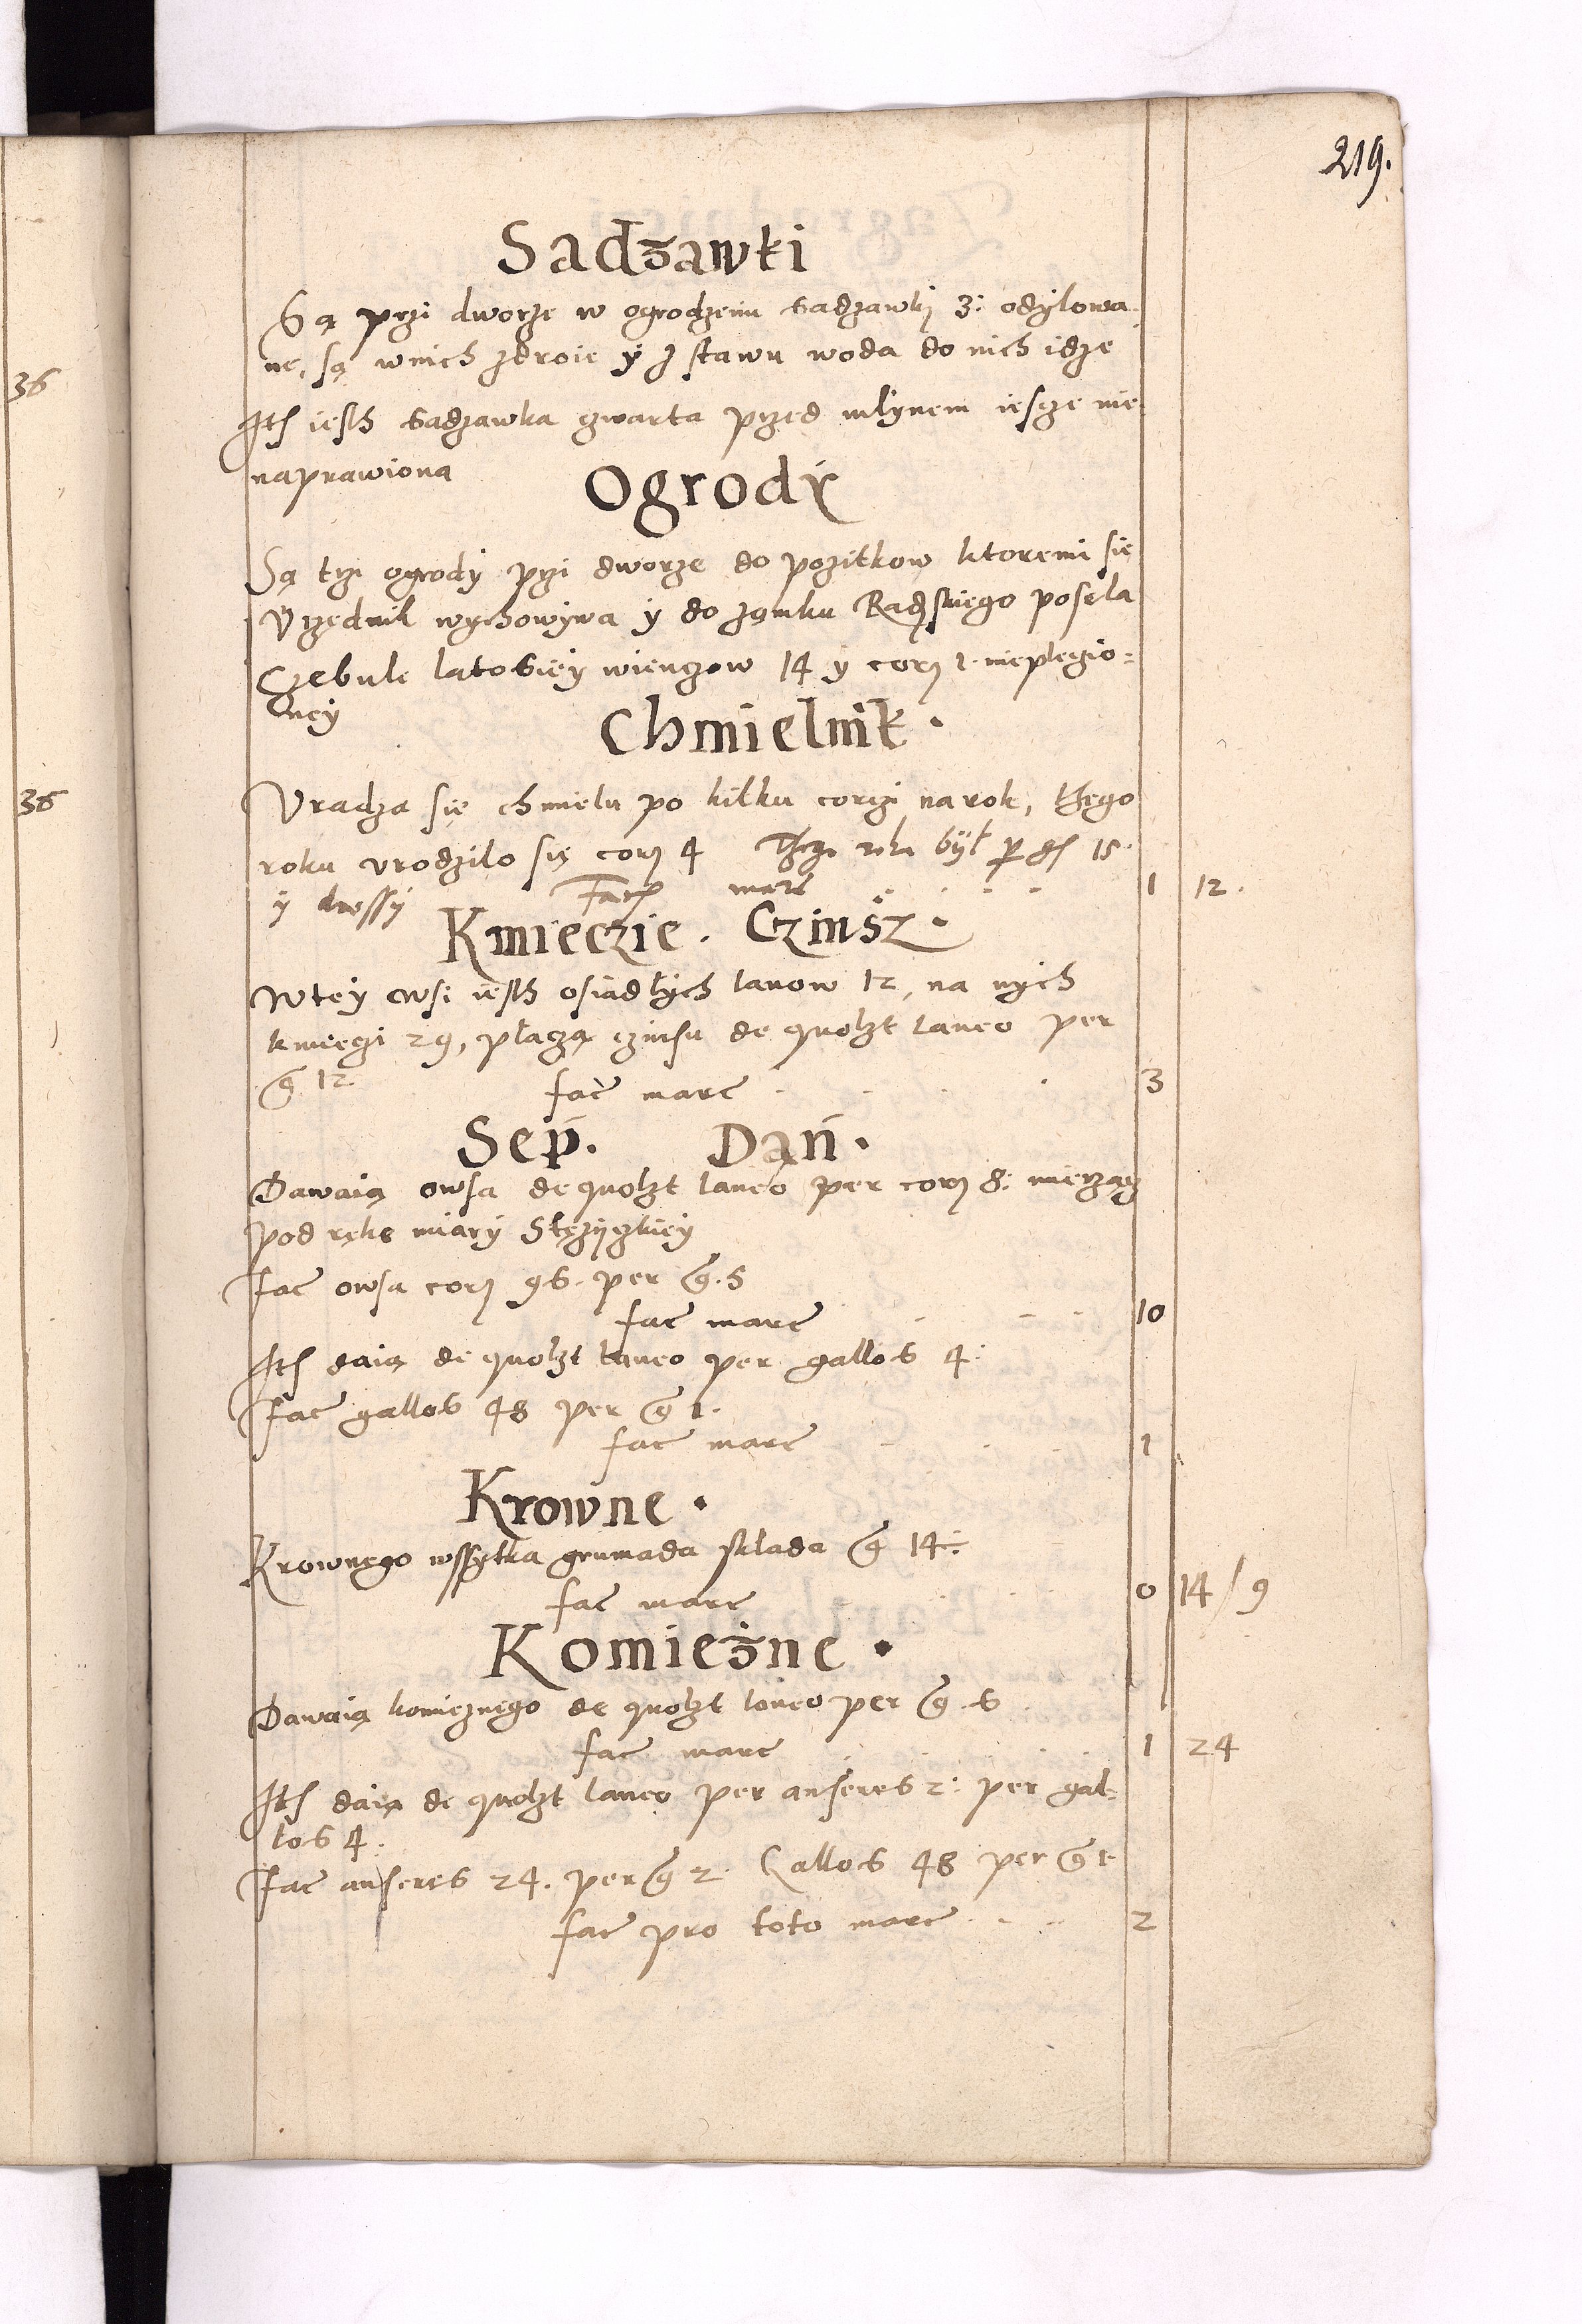 219.
36
36
Sadzawki
Są przi dworze w ogrodzeniu sadzawki 3: odylowa
ne, są wnich zdroie y z stawu woda do nich idze
Ith iesth sadzawka czwarta przed młynem iescze nie
naprawiona
Ogrody
Są trzi ogrody przi dworze do pozitkow ktoremi się
Vrzędnik wychowywa y do zamku Radzskiego posela
Czebule latosiey wienczow 14 y corz 1. nieplecio=
ney
Chmielnik.
Vradza się chmielu po kilku corczi narok, thego
roku vrodzilo się corz 4 Thego roku był per gr 15.
y drossy Facit marc 1 12.
Kmieczie. Czinsz.
Wtey wsi iesth osiadlych lanow 12, na nych
kmieczi 29, płaczą czinsu de quolzt laneo per
g 12
fac marc 3
Sep. Dań.
Dawaią owsa de quolzt laneo per corz 8: mierząg
pod rękę miary Stęzyczkiey
fac owsa corz 96. per g. 5
fac marc 10
Ith daią de quolzt laneo per gallos 4:
fac gallos 48 per g 1.
fac marc 1
Krowne.
Krownego wssytka grumada sklada g 14:
fac marc 0 14/9
Komiezne.
Dawaią komieznego de quolzt laneo per g. 6
fac marc 1 24
Ith daią de quolzt laneo per anseres 2: per gal=
los 4.
fac anseres 24. per g 2. Gallos 48 per g 1.
fac pro toto marc 2